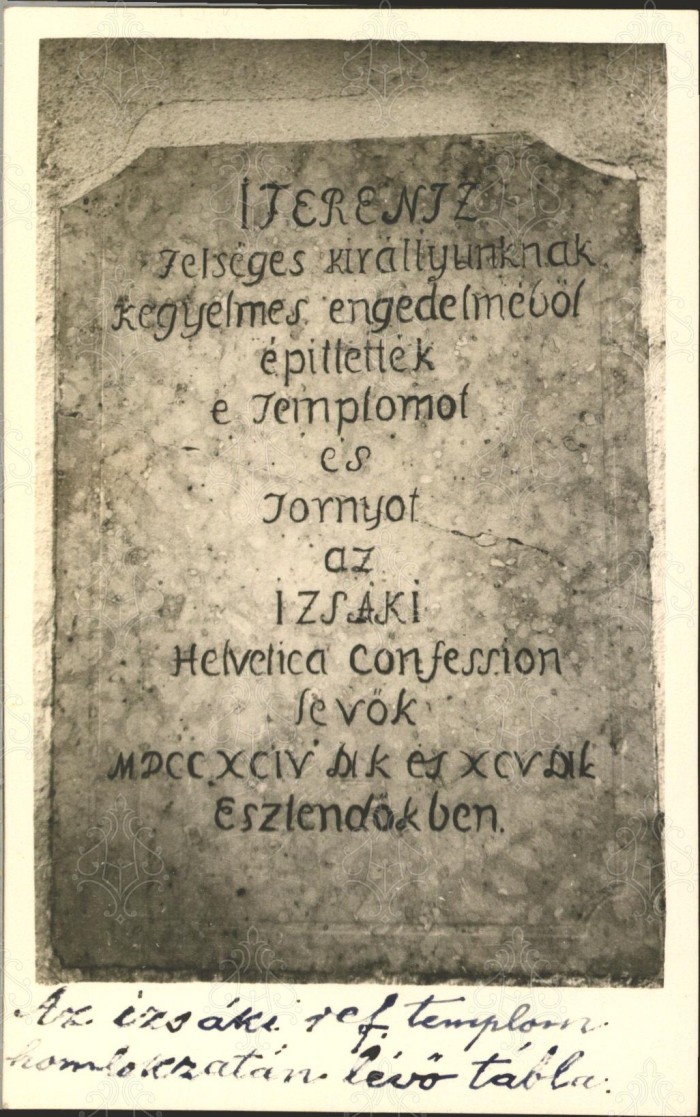 I FERENTZ
Felséges királlyunknak
kegyelmes engedelméböl
épittették
e Templomot
és
Tornyot
az
IZSÁKI
Helvetica Confession
levök
MDCCXCIV DIK és XCV DIK
Esztendökben.
Az izsáki ref. templom
homlokzatán lévő tábla.